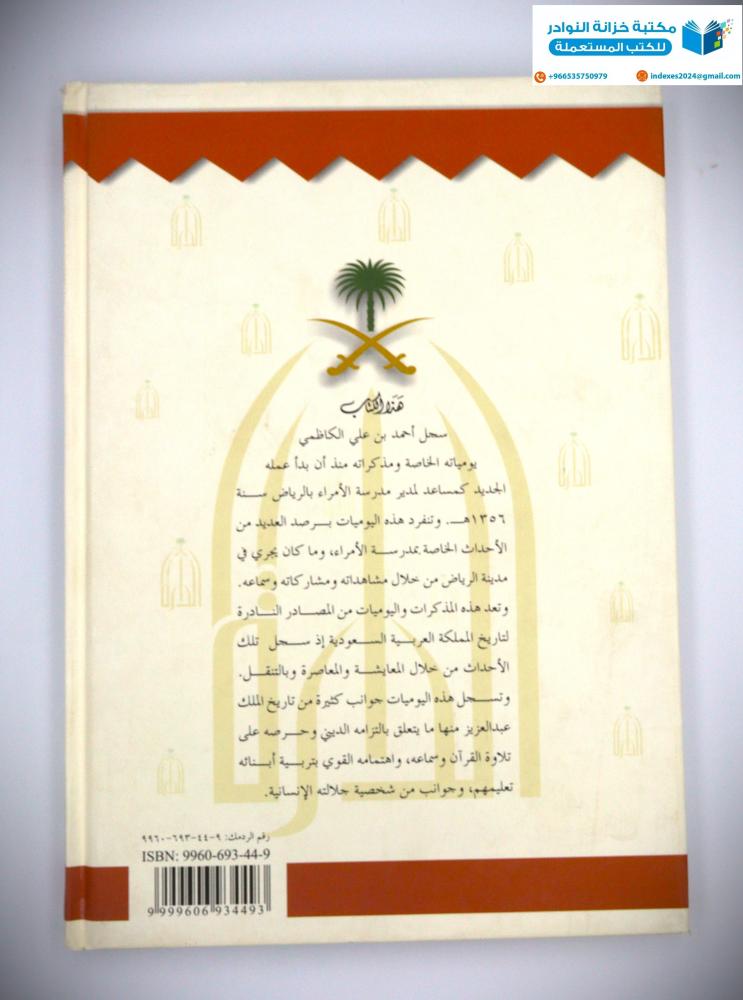 مكتبة خزانة النوادر
للكتب المستعملة
+966535750979
indexes2024@gmail.com
هذا الكتاب
سجل أحمد بن علي الكاظمي
يومياته الخاصة ومذكراته منذ أن بدأ عمله
الجديد كمساعد لمدير مدرسة الأمراء بالرياض سنة
١٣٥٦هـ. وتنفرد هذه اليوميات برصد العديد من
الأحداث الخاصة بمدرسة الأمراء، وما كان يجري في
مدينة الرياض من خلال مشاهداته ومشاركاته وسماعه.
وتعد هذه المذكرات واليوميات من المصادر النادرة
لتاريخ المملكة العربية السعودية إذ سجل تلك
الأحداث من خلال المعايشة والمعاصرة وبالتنقل.
وتسجل هذه اليوميات جوانب كثيرة من تاريخ الملك
عبدالعزيز منها ما يتعلق بالتزامه الديني وحرصه على
تلاوة القرآن وسماعه، واهتمامه القوي بتربية أبنائه
تعليمهم، وجوانب من شخصية جلالته الإنسانية.
رقم الردمك: ٩-٤٤-٦٩٣-٩٩٦٠
ISBN: 9960-693-44-9
9 999606 934493